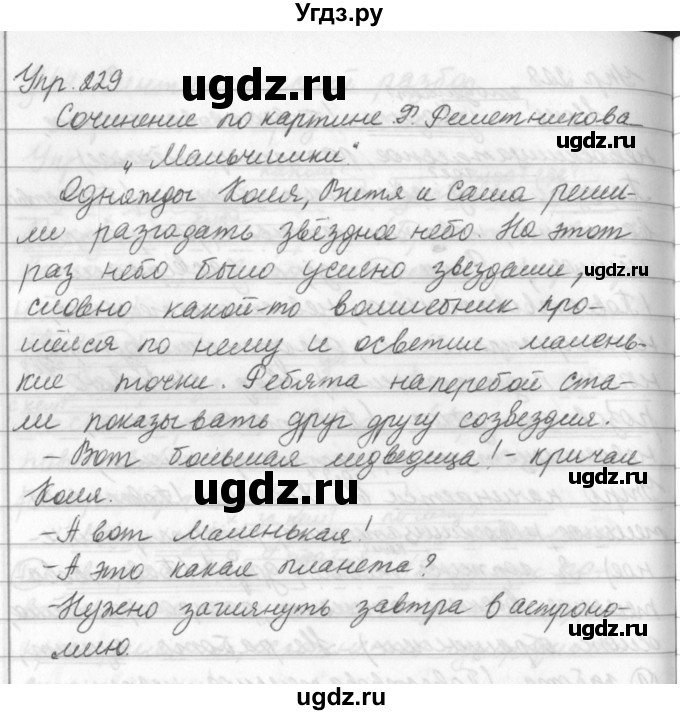 Угдз.ру
Упр. 229
ugdz.ru
Сочинение по картине Ф. Решетникова
„Мальчишки“
Однажды Коля, Витя и Саша реши-
ли разгадать звёздное небо. На этот
раз небо было усеяно звездами,
ugdz.ru
словно какой-то волшебник про-
шёлся по нему и осветил малень-
кие точки. Ребята наперебой ста-
ли показывать друг другу созвездия.
- Вот большая медведица! - кричал
ugdz.ru
Коля.
ugdz.ru
- А вот Маленькая!
- А это какая планета?
- Нужно заглянуть завтра в астроно-
ugdz.ru
мию.
ugdz.ru